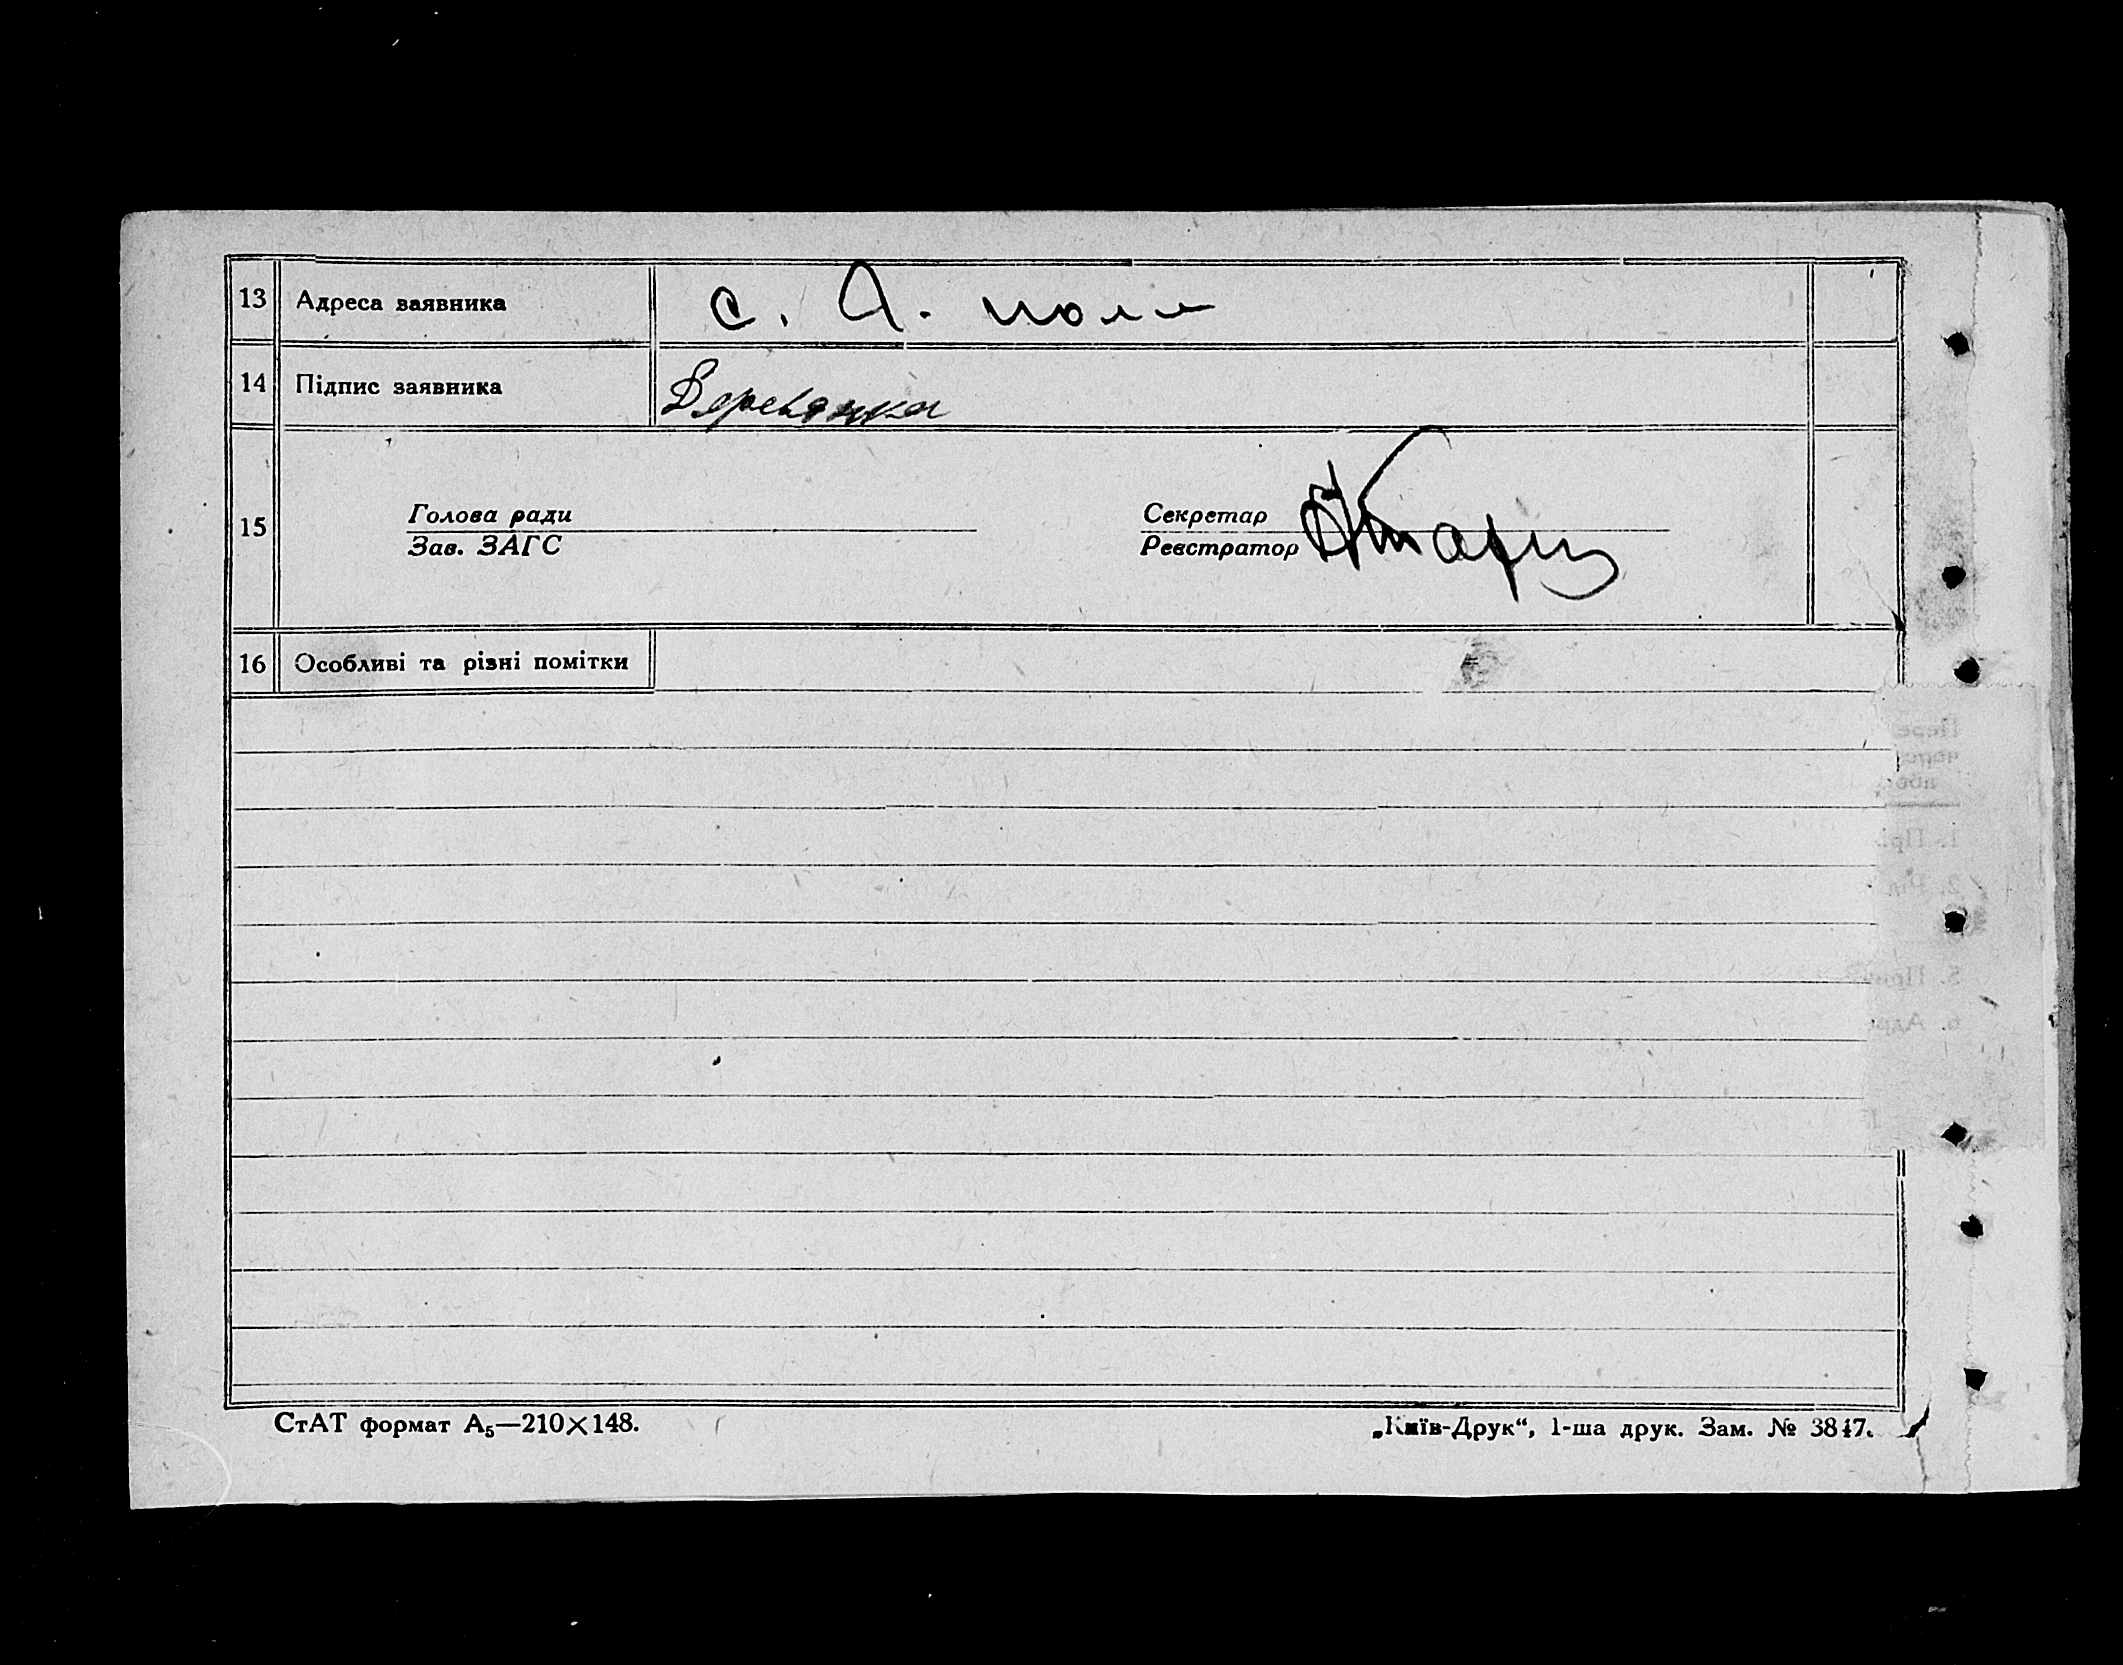 13 Адреса заявника с. Я. поля
14 Підпис заявника Деревянка
15
Голова ради
Зав. ЗАГС
Секретар
Реєстратор
16 Особливі та різні помітки
СтАТ формат А₅—210×148.
„Київ-Друк“, 1-ша друк. Зам. № 3847.